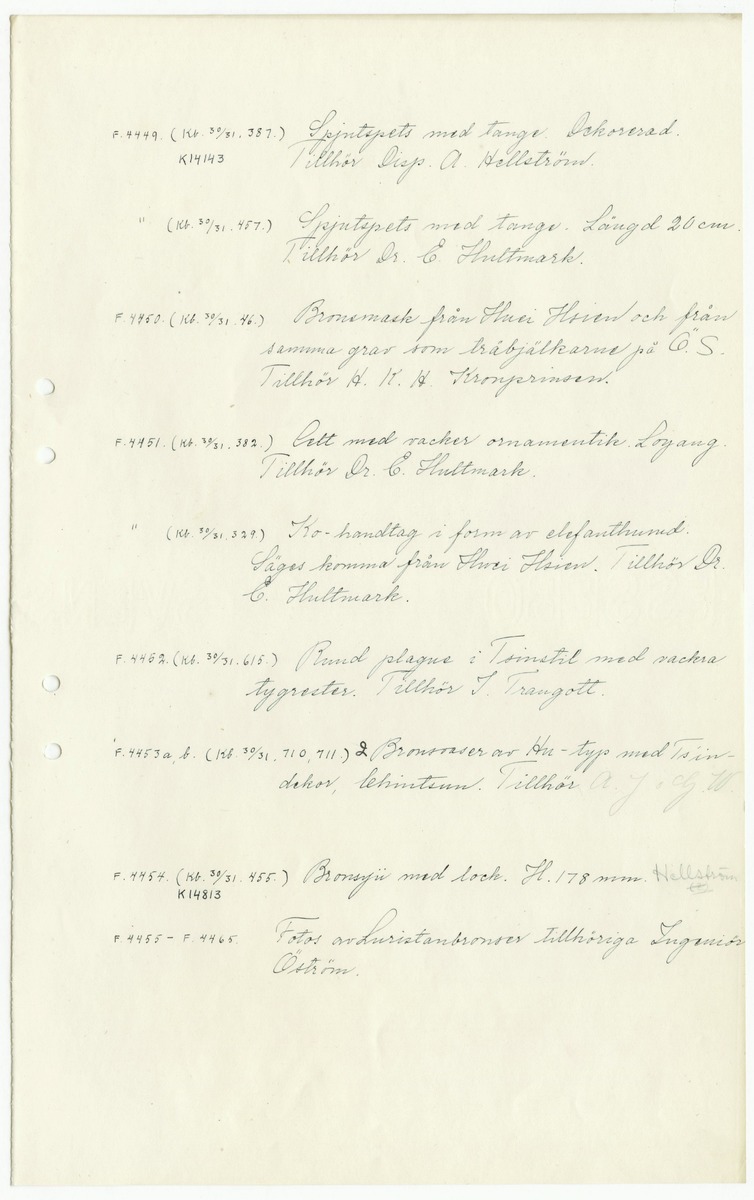 F.4449. (Kb. 30/31. 387.) Spjutspets med tange. Dekorerad.
K14143 Tillhör Disp. A. Hellström.
" (Kb. 30/31. 457.) Spjutspets med tange. Längd 20 cm.
Tillhör Dr. E. Hultmark.
F.4450. (Kb. 30/31. 46.) Bronsmask från Hwei Hsien och från
samma grav som träbjälkarne på Ö.S.
Tillhör H. K. H. Kronprinsen.
F.4451. (Kb. 30/31. 382.) Celt med vacker ornamentik. Loyang.
Tillhör Dr. E. Hultmark.
" (Kb. 30/31. 329.) Ko-handtag i form av elefanthuvud.
Säges komma från Hwei Hsien. Tillhör Dr.
E. Hultmark.
F.4452. (Kb. 30/31. 615.) Rund plaque i Tsinstil med vackra
tygrester. Tillhör I. Traugott.
F.4453a, b. (Kb. 30/31, 710, 711.) 2 Bronsvaser av Hu-typ med Ts'in-
dekor, Chintsun. Tillhör A. J. W.
F.4454. (Kb. 30/31. 455.) Bronsyü med lock. H. 178 mm. Hellström
K14813
F.4455 – F.4465. Fotos av Luristanbronser tillhöriga Ingeniör
Öström.